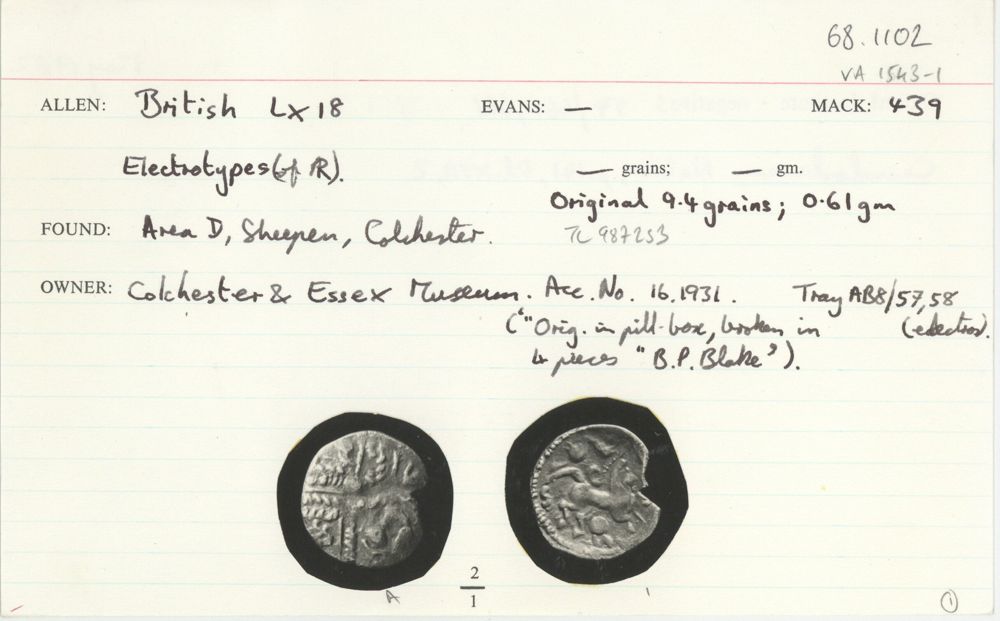 68.1102
VA 1543-1
ALLEN: British LX 18 EVANS: — MACK: 439
Electrotypes (of AR). — grains; — gm.
Original 9.4 grains; 0.61gm
FOUND: Area D, Sheepen, Colchester. TL 987253
OWNER: Colchester & Essex Museum. Acc. No. 16.1931. Tray AB8/57,58
("Orig. in pill-box, broken in (electros).
4 pieces "B.P. Blake").
2
1
A
1